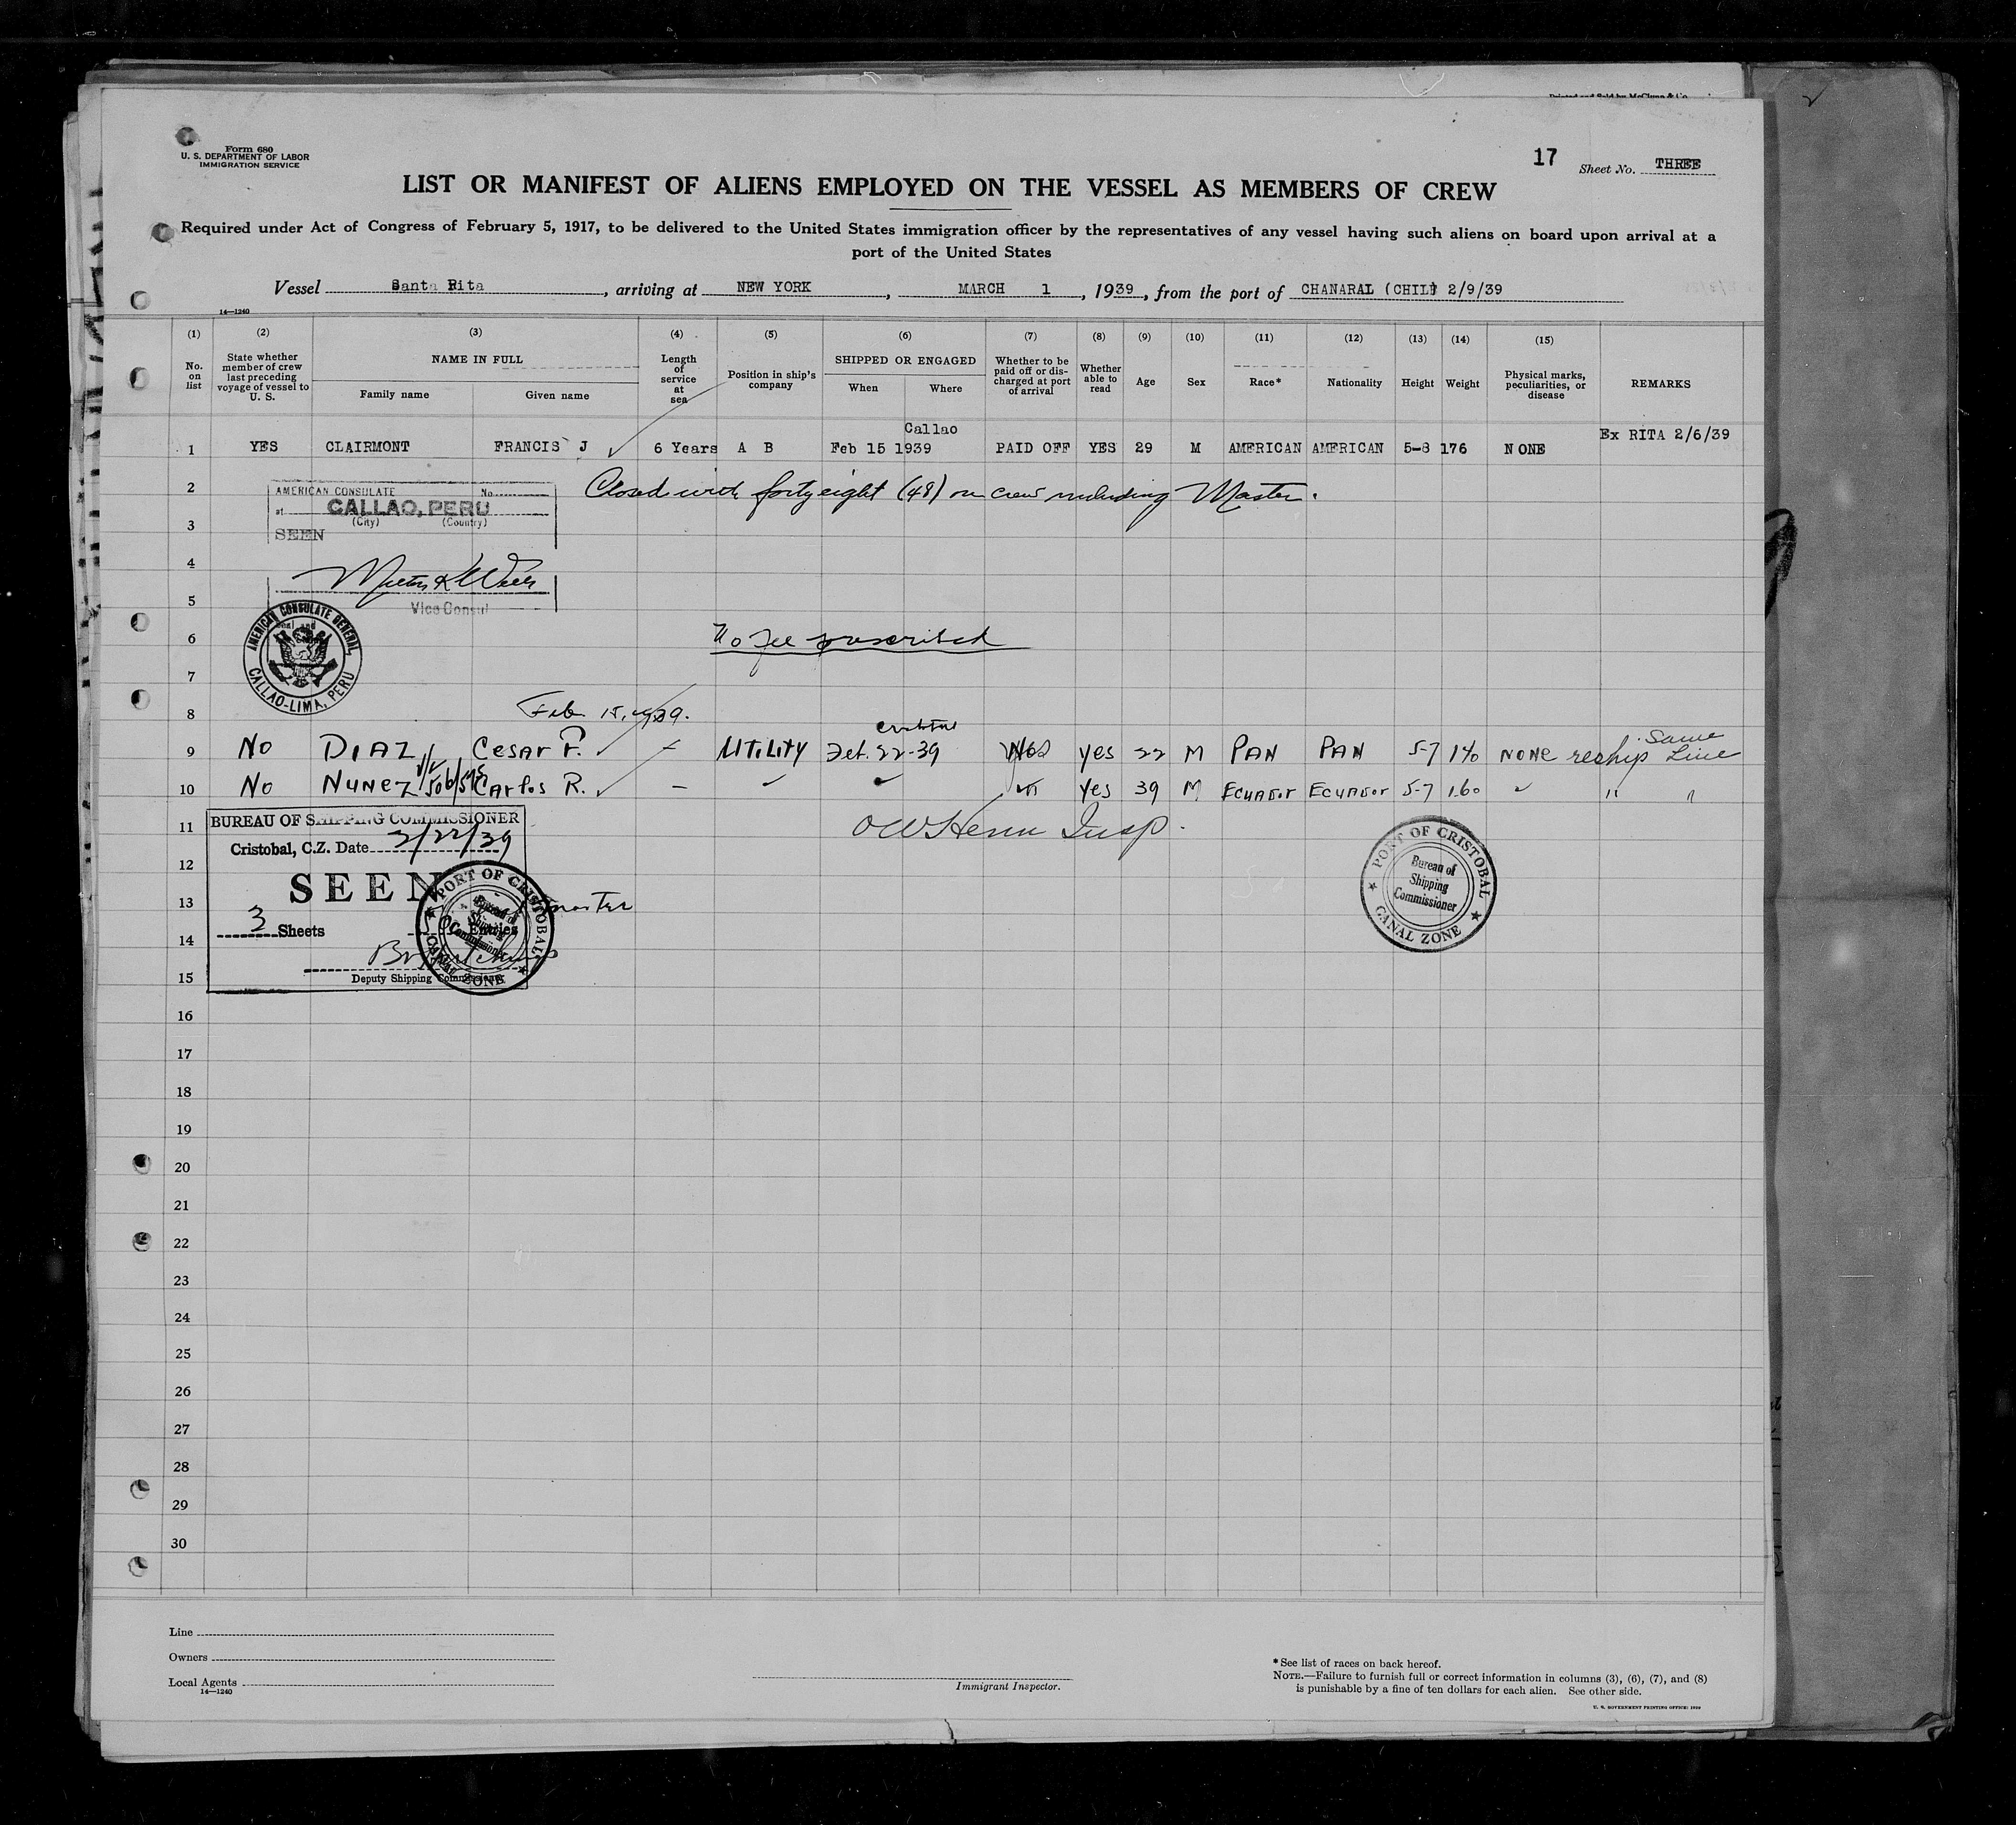 Form 680
U. S. DEPARTMENT OF LABOR
IMMIGRATION SERVICE
17 Sheet No. THREE
LIST OR MANIFEST OF ALIENS EMPLOYED ON THE VESSEL AS MEMBERS OF CREW
Required under Act of Congress of February 5, 1917, to be delivered to the United States immigration officer by the representatives of any vessel having such aliens on board upon arrival at a
port of the United States
Vessel Santa Rita, arriving at NEW YORK, MARCH 1, 1939, from the port of CHANARAL (CHILE) 2/9/39
14—1240
(1) (2) (3) (4) (5) (6) (7) (8) (9) (10) (11) (12) (13) (14) (15)
No. on list
State whether member of crew last preceding voyage of vessel to U. S.
NAME IN FULL
Family name Given name
Length of service at sea
Position in ship's company
SHIPPED OR ENGAGED
When Where
Whether to be paid off or discharged at port of arrival
Whether able to read
Age
Sex
Race*
Nationality
Height
Weight
Physical marks, peculiarities, or disease
REMARKS
Callao
1 YES CLAIRMONT FRANCIS J 6 Years A B Feb 15 1939 PAID OFF YES 29 M AMERICAN AMERICAN 5-8 176 NONE Ex RITA 2/6/39
2 Closed with forty eight (48) on crew including Master.
AMERICAN CONSULATE No.
at CALLAO, PERU
(City) (Country)
3 SEEN
4
5 Vice Consul
AMERICAN CONSULATE GENERAL, CALLAO-LIMA, PERU
6 No fee prescribed
7
8 Feb. 15, 1939.
9 No DIAZ Cesar P. - UTILITY 22-39 yes 22 M PAN PAN 5-7 140 NONE reship Same Line
10 No Nunez Carlos R. - Yes 39 M Ecuador Ecuador 5-7 160 " "
11 Insp.
BUREAU OF SHIPPING COMMISSIONER
Cristobal, C.Z. Date 2/22/39
12
SEEN
13 master
3 Sheets Entries
14
15 Deputy Shipping Commissioner
PORT OF CRISTOBAL
Bureau of
Shipping
Commissioner
CANAL ZONE
PORT OF CRISTOBAL
Bureau of
Shipping
Commissioner
CANAL ZONE
16
17
18
19
20
21
22
23
24
25
26
27
28
29
30
Line
Owners
Local Agents
14—1240
Immigrant Inspector.
* See list of races on back hereof.
NOTE.—Failure to furnish full or correct information in columns (3), (6), (7), and (8)
is punishable by a fine of ten dollars for each alien. See other side.